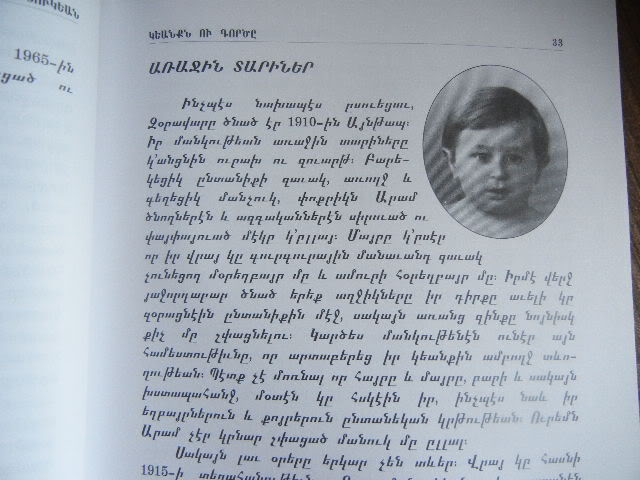 1965-ին
ու
ԿԵԱՆՔՆ ՈՒ ԳՈՐԾԸ
33
ԱՌԱՋԻՆ ՏԱՐԻՆԵՐ
Ինչպէս նախապէս ըսուեցաւ,
Զօրավարը ծնած էր 1910-ին Այնթապ:
Իր մանկութեան առաջին տարիները
կ՚անցնին ուրախ ու զուարթ: Բարե-
կեցիկ ընտանիքի զաւակ, առողջ և
գեղեցիկ մանչուկ, փոքրիկն Արամ
ծնողներէն և ազգականներէն սիրուած ու
փայփայուած մէկը կ՚ըլլայ: Մայրը կ՚ըսէր
որ իր վրայ կը գուրգուրային մանաւանդ զաւակ
չունեցող մօրեղբայր մը և ամուրի հօրեղբայր մը: Իրմէ վերջ
յաջորդաբար ծնած երեք աղջիկները իր դիրքը աւելի կը
զօրացնէին ընտանիքին մէջ, սակայն առանց զինքը նոյնիսկ
քիչ մը շփացնելու: Կարծես մանկութենէն ունէր այն
համեստութիւնը, որ արտաբերեց իր կեանքին ամբողջ տևո-
ղութեան: Պէտք չէ մոռնալ որ հայրը և մայրը, բարի և սակայն
խստապահանջ, մօտէն կը հսկէին իր, ինչպէս նաև իր
եղբայրներուն և քոյրերուն ընտանեկան կրթութեան: Ուրեմն
Արամ չէր կրնար շփացած մանուկ մը ըլլալ:
Սակայն լաւ օրերը երկար չեն տևեր: Վրայ կը հասնի
1915-ի